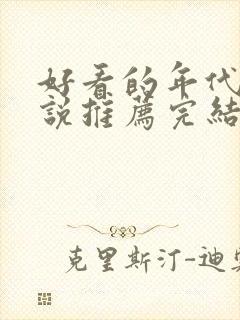 好看的年代
說推薦完結
克里斯汀-迪